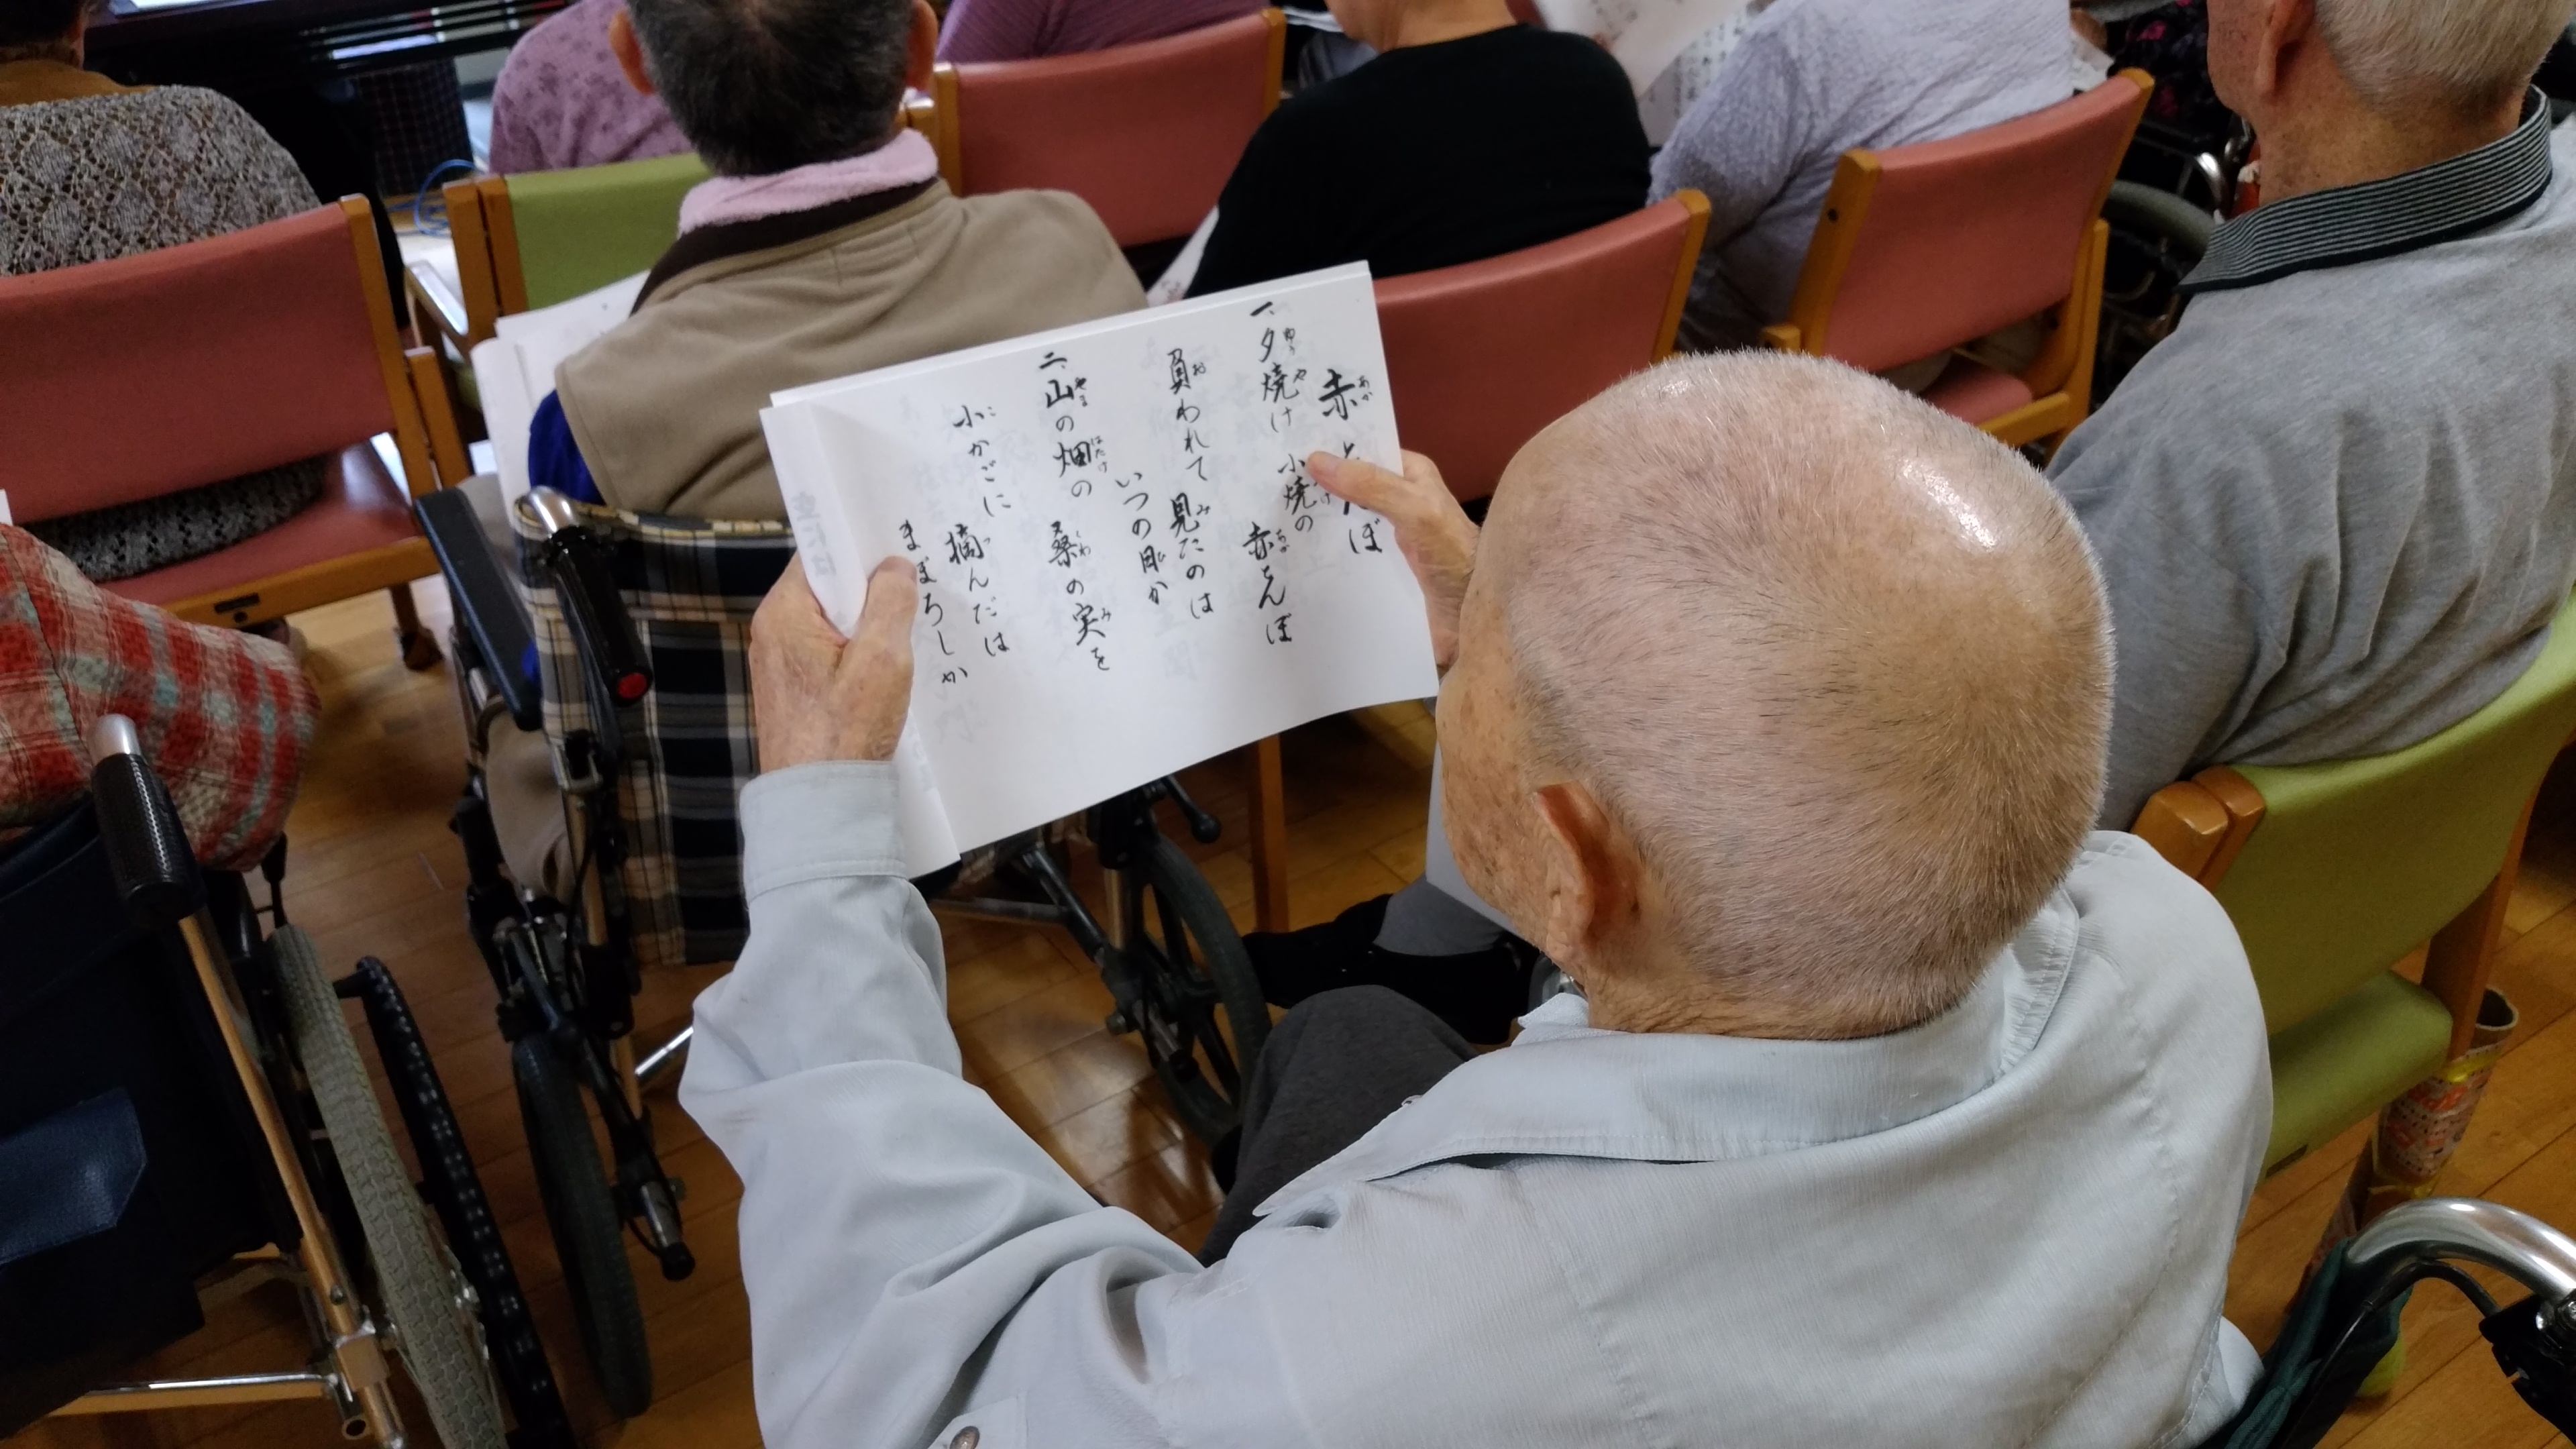 赤とんぼ
一、夕焼け 小焼の 赤とんぼ
負われて 見たのは
いつの日か
二、山の畑の 桑の実を
小かごに 摘んだは
まぼろしか